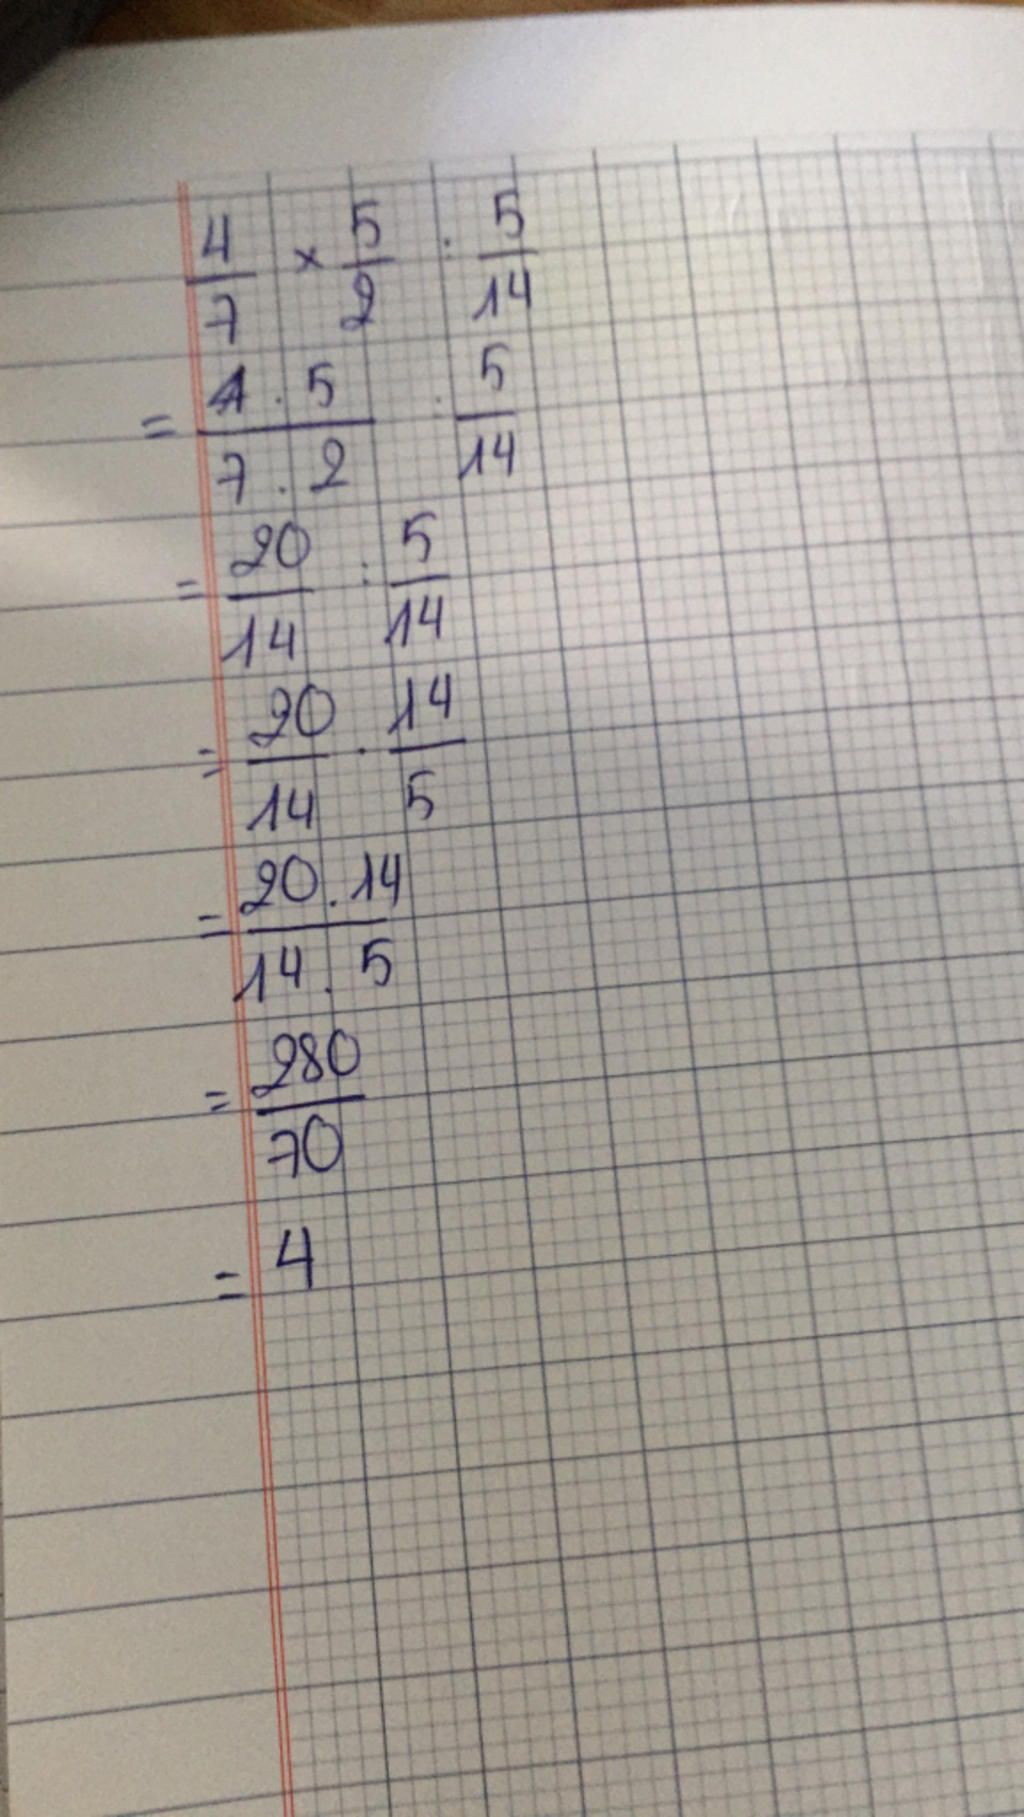 4/7 × 5/2 : 5/14
= 4 . 5/7 . 2 : 5/14
= 20/14 : 5/14
= 20/14 . 14/5
= 20 . 14/14 . 5
= 280/70
= 4